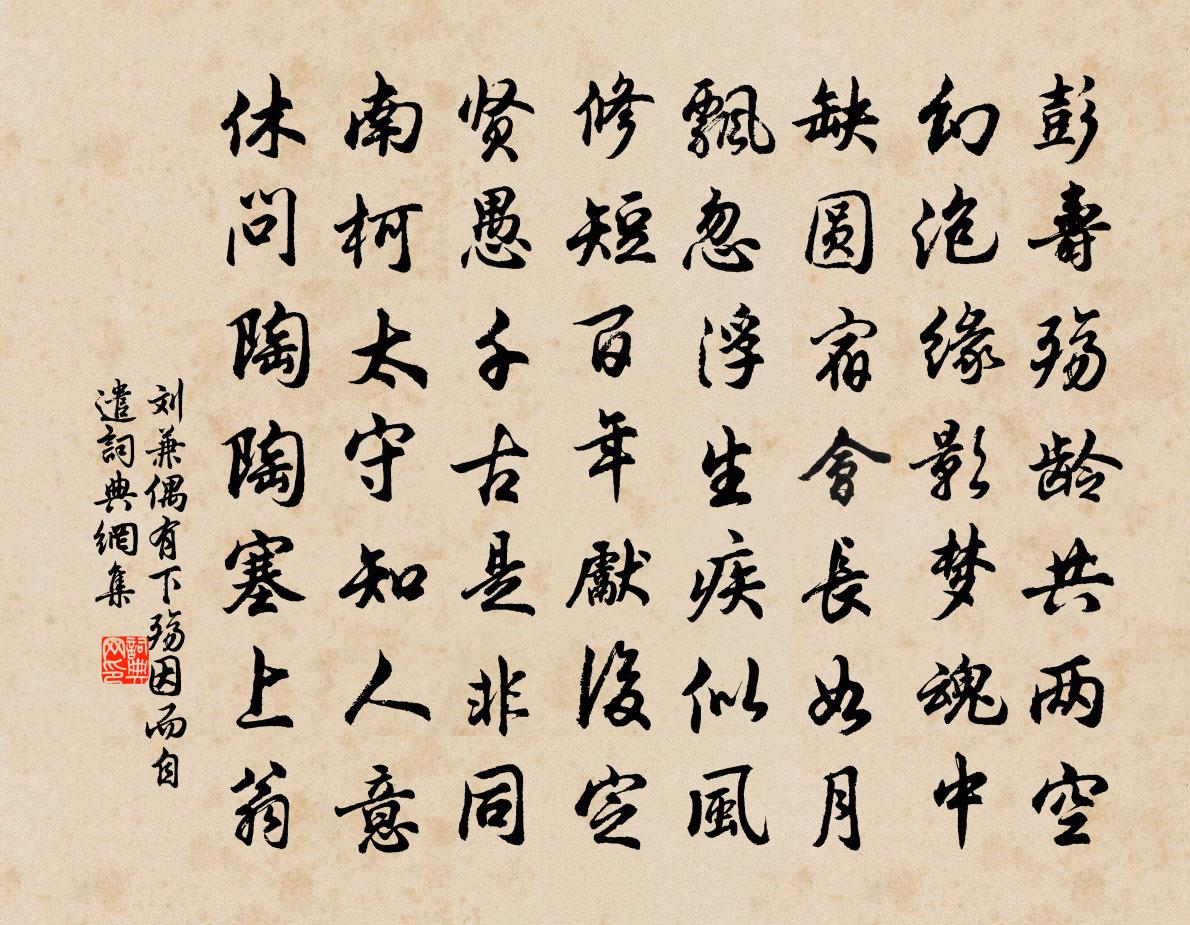 彭壽殇龄共两空
幻泡缘影梦魂中
缺圆宿會長如月
飄忽浮生疾似風
修短百年獻後定
贤愚千古是非同
南柯太守知人意
休問陶陶塞上翁
刘兼偶有下殇因而自
遣詞典網集
詞典网印